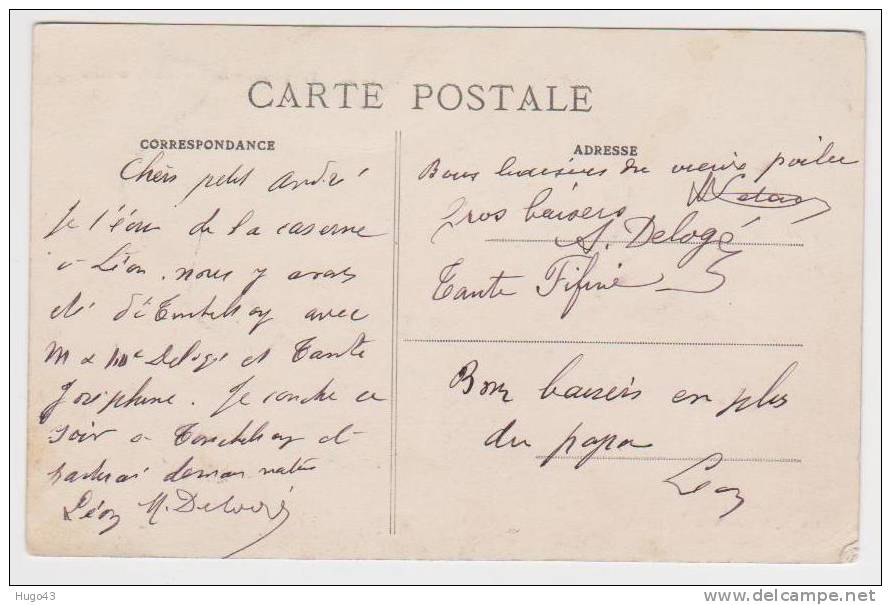 CARTE POSTALE
CORRESPONDANCE
Chers petit andré
Je de la caserne
a Léon. nous y avons
été avec
M & Me Delogé et Tante
Joséphine. Je couche ce
soir a et
partirai demain matin
Léon M. Delogé
ADRESSE
Bons baisers du vieux poilu
Gros baisers
A. Delogé
Tante Fifine
Bons baisers en plus
du papa
Léon
Hugo43
www.delcampe.net